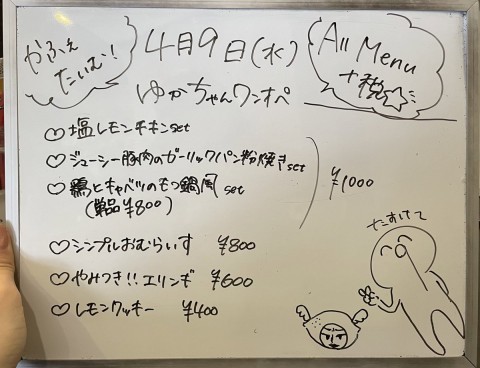 かふぇ
たいむ!
4月9日(水)
All Menu
+税
ゆかちゃんワンオペ
♡塩レモンチキンset
♡ジューシー豚肉のガーリックパン粉焼きset
♡鶏とキャベツのもつ鍋風set
(単品¥800)
¥1000
♡シンプルおむらいす ¥800
♡やみつき!!エリンギ ¥600
♡レモンクッキー ¥400
たすけて